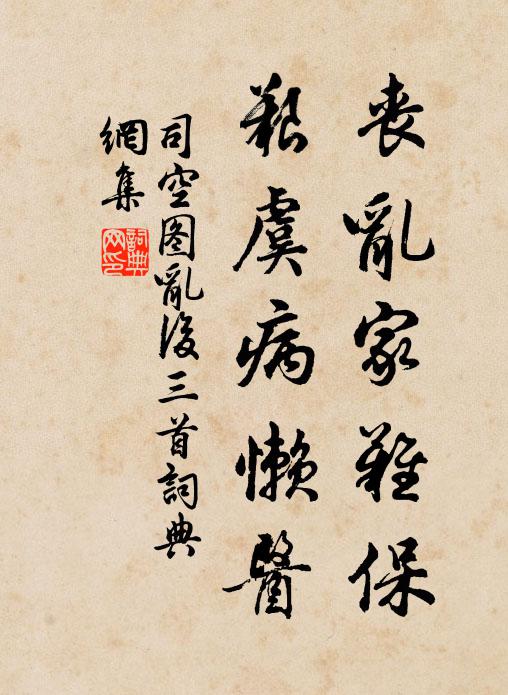 丧亂家難保
艱虞病懶醫
司空图亂後三首詞典
網集
詞典
网印